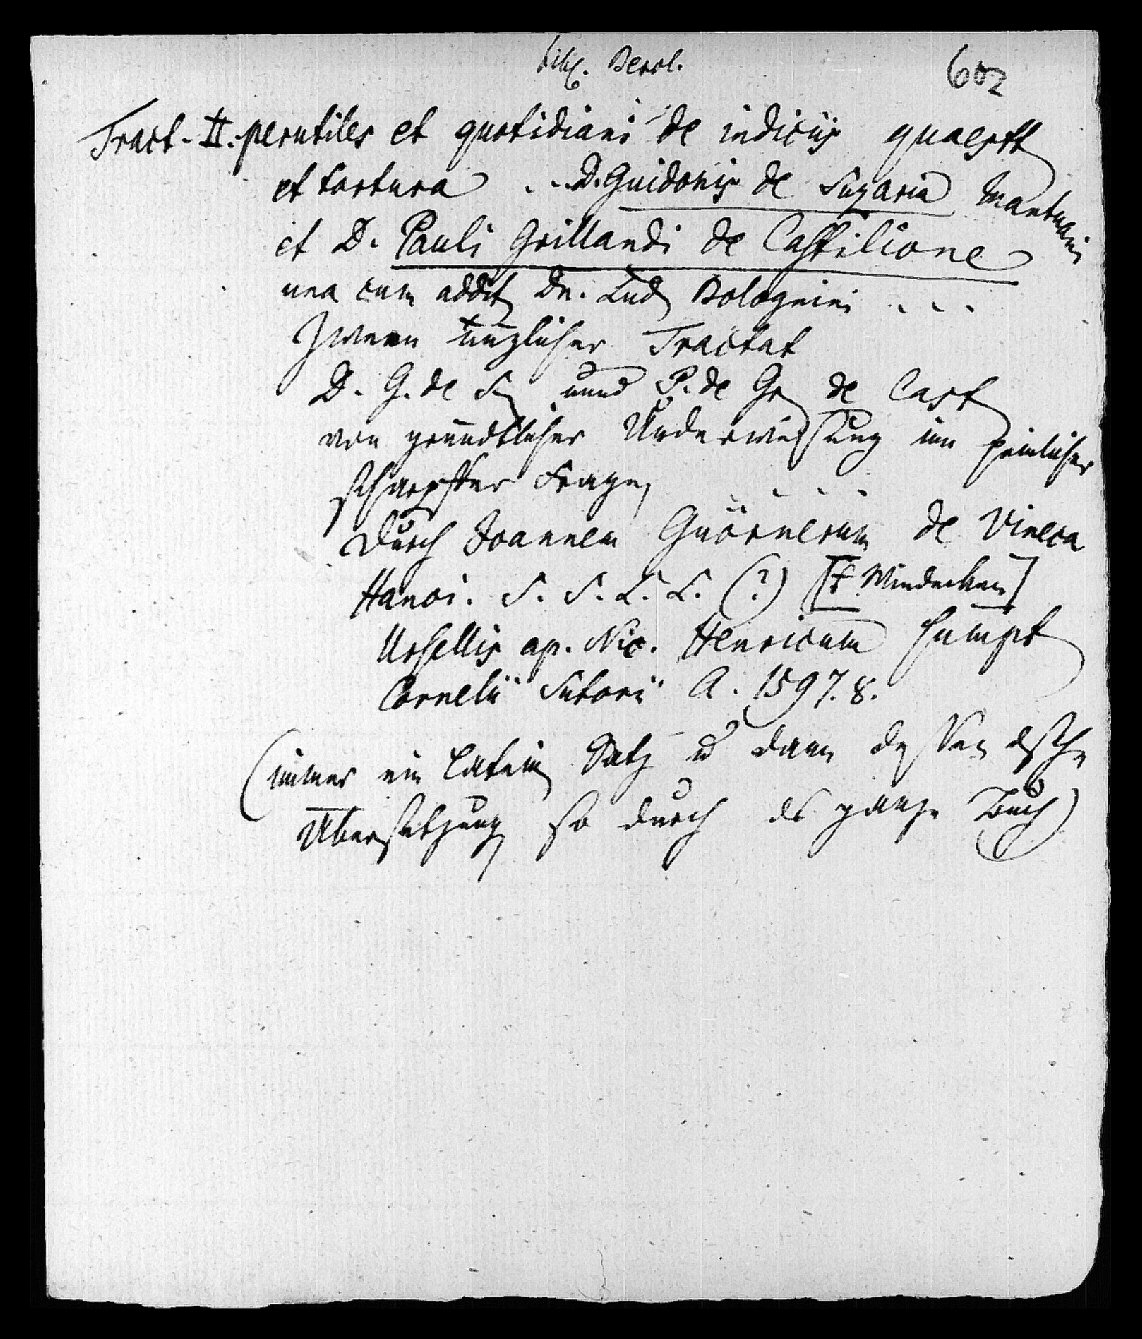 bibl. Berol.
602
Tract. II. perutiles et quotidiani de indiciis quaestt
et tortura . . D. Guidonis de Suzaria Mantuani
et D. Pauli Grillandi de Castilione
una cum addit Dn. Lud Bolognini . . .
Zween nuzlicher Tractat
D. G. de S. unnd P. de Gr de Cast
von grundtlicher Underweisung inn peinlicher
schaerpffter Frage, . . . .
durch Joannem Guörnerum de Vinecca
Hanoi. S. S. L. L. (?) [f Windecken]
Ursellis ap. Nic. Henricum sumpt
Cornelii Sutorii A. 1597. 8.
(immer ein Latein Satz u dann dessen dtsche
Übersetzung so durch ds ganze Buch)